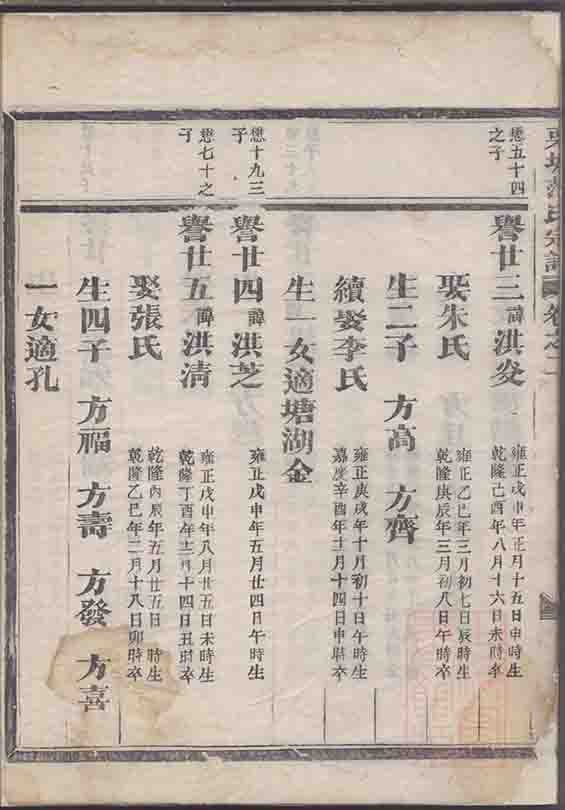 氏宗譜 卷之二
懋五十四之子
譽廿三諱洪㳠
雍正戊申年正月十五日申時生
乾隆己酉年八月十六日未時卒
娶朱氏
雍正乙巳年三月初七日辰時生
乾隆庚辰年三月初八日午時卒
生二子 方高 方齊
續娶李氏
雍正庚戌年十月初十日午時生
嘉慶辛酉年十一月十四日申時卒
生一女適塘湖金
懋十九三子
譽廿四諱洪芝
雍正戊申年五月廿四日午時生
懋七十之子
譽廿五諱洪清
雍正戊申年八月廿五日未時生
乾隆丁酉年十二月十四日丑時卒
娶張氏
乾隆丙辰年五月廿五日 時生
乾隆乙巳年二月十八日卯時卒
生四子 方福 方壽 方發 方喜
一女適孔